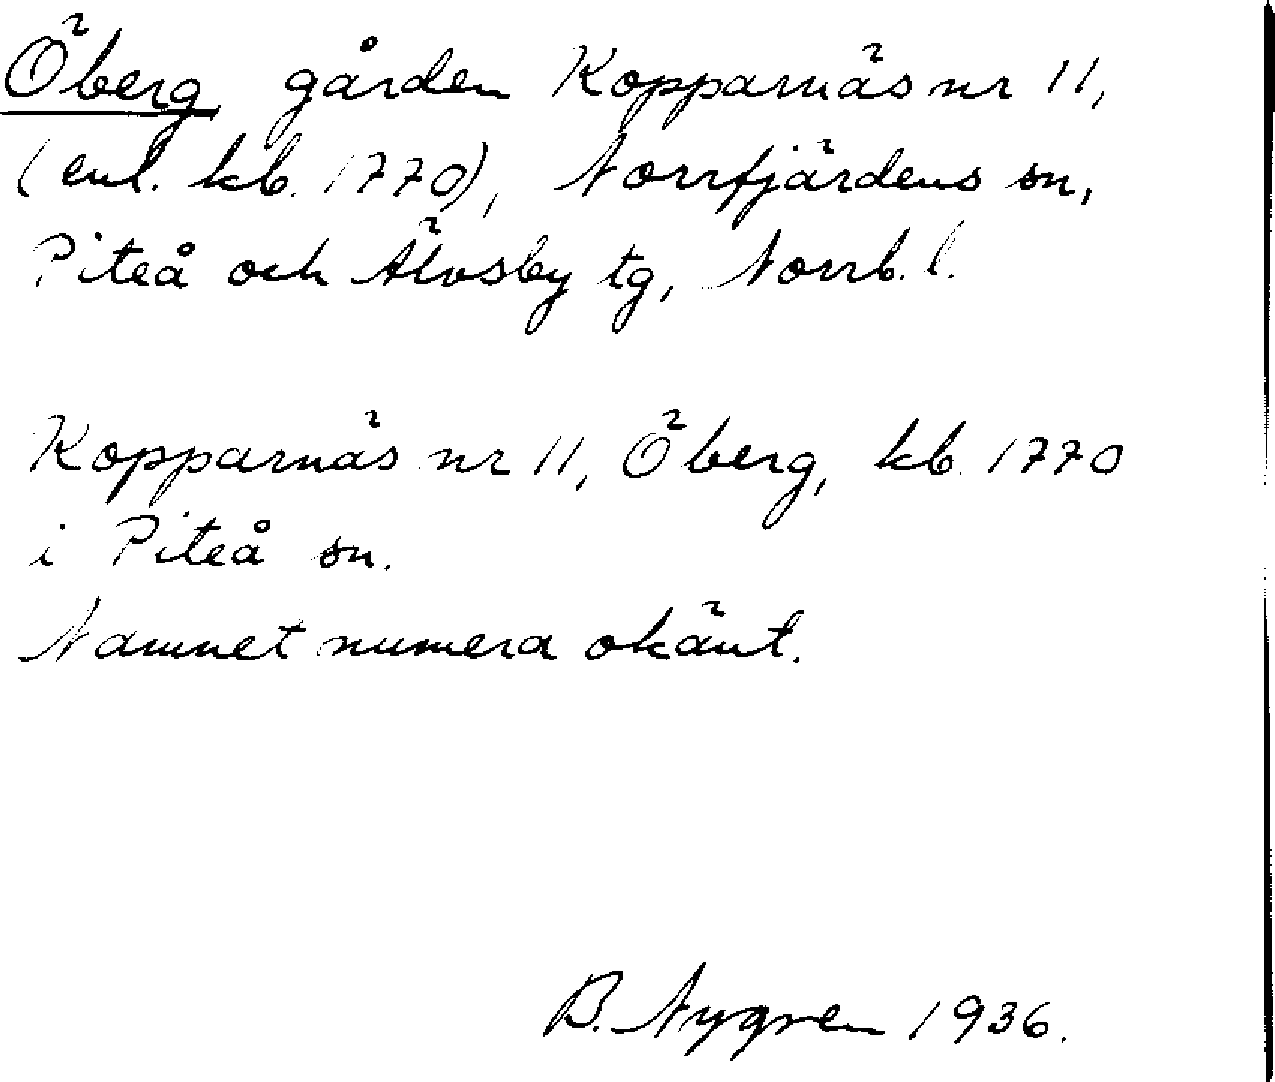 Öberg gården Kopparnäs nr 11,
(enl. kb. 1770), Norrfjärdens sn,
Piteå och Älvsby tg, Norrb. l.
Kopparnäs nr 11, Öberg, kb. 1770
i Piteå sn.
Namnet numera okänt.
B. Nygren 1936.